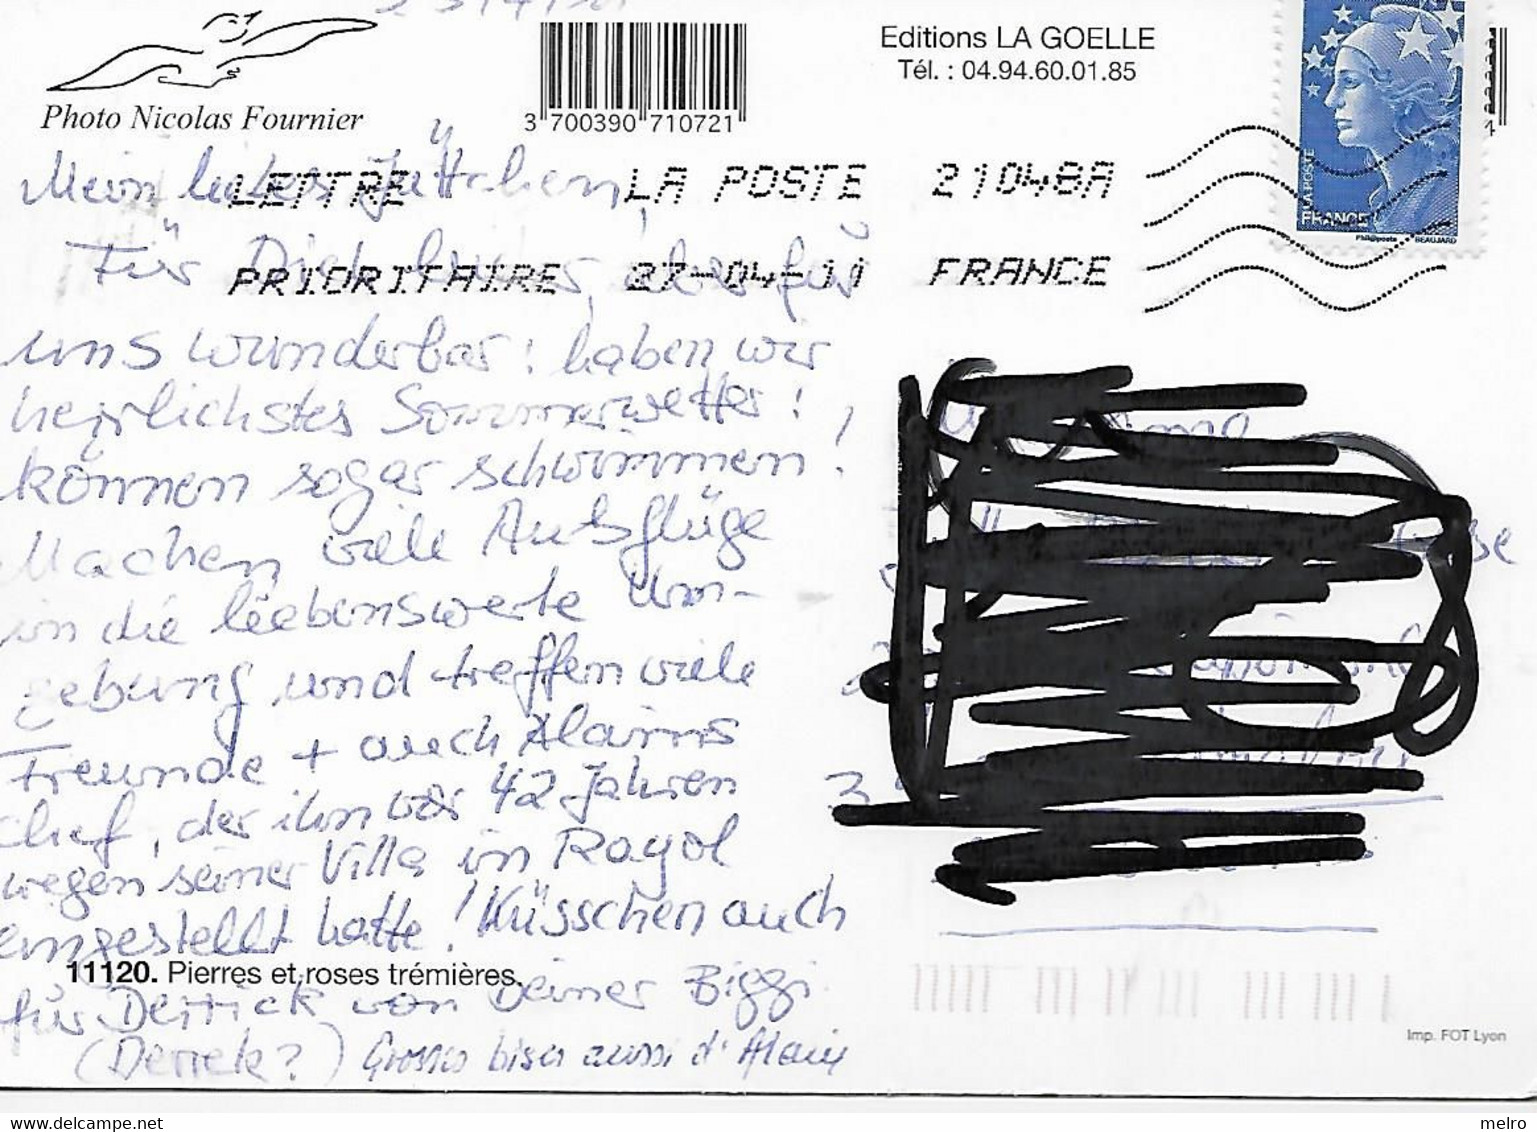 Photo Nicolas Fournier
3 700390 710721
Editions LA GOELLE
Tél. : 04.94.60.01.85
LA POSTE
FRANCE
Phil@poste BEAUJARD
LETTRE LA POSTE 21048A
PRIORITAIRE 27-04-11 FRANCE
Mein liebes Jüttchen,
Für Dich aber für
uns wunderbar: haben wir
herrlichstes Sommerwetter!
können sogar schwimmen!
Machen viele Ausflüge
in die liebenswerte Um-
gebung und treffen viele
Freunde + auch Alains
Chef, der ihn vor 42 Jahren
wegen seiner Villa in Rayol
eingestellt hatte! Küsschen auch
für Derrick von Deiner Biggi
(Derrek?) Grosses bises aussi d'Alain
11120. Pierres et roses trémières.
Imp. FOT Lyon
www.delcampe.net
melro